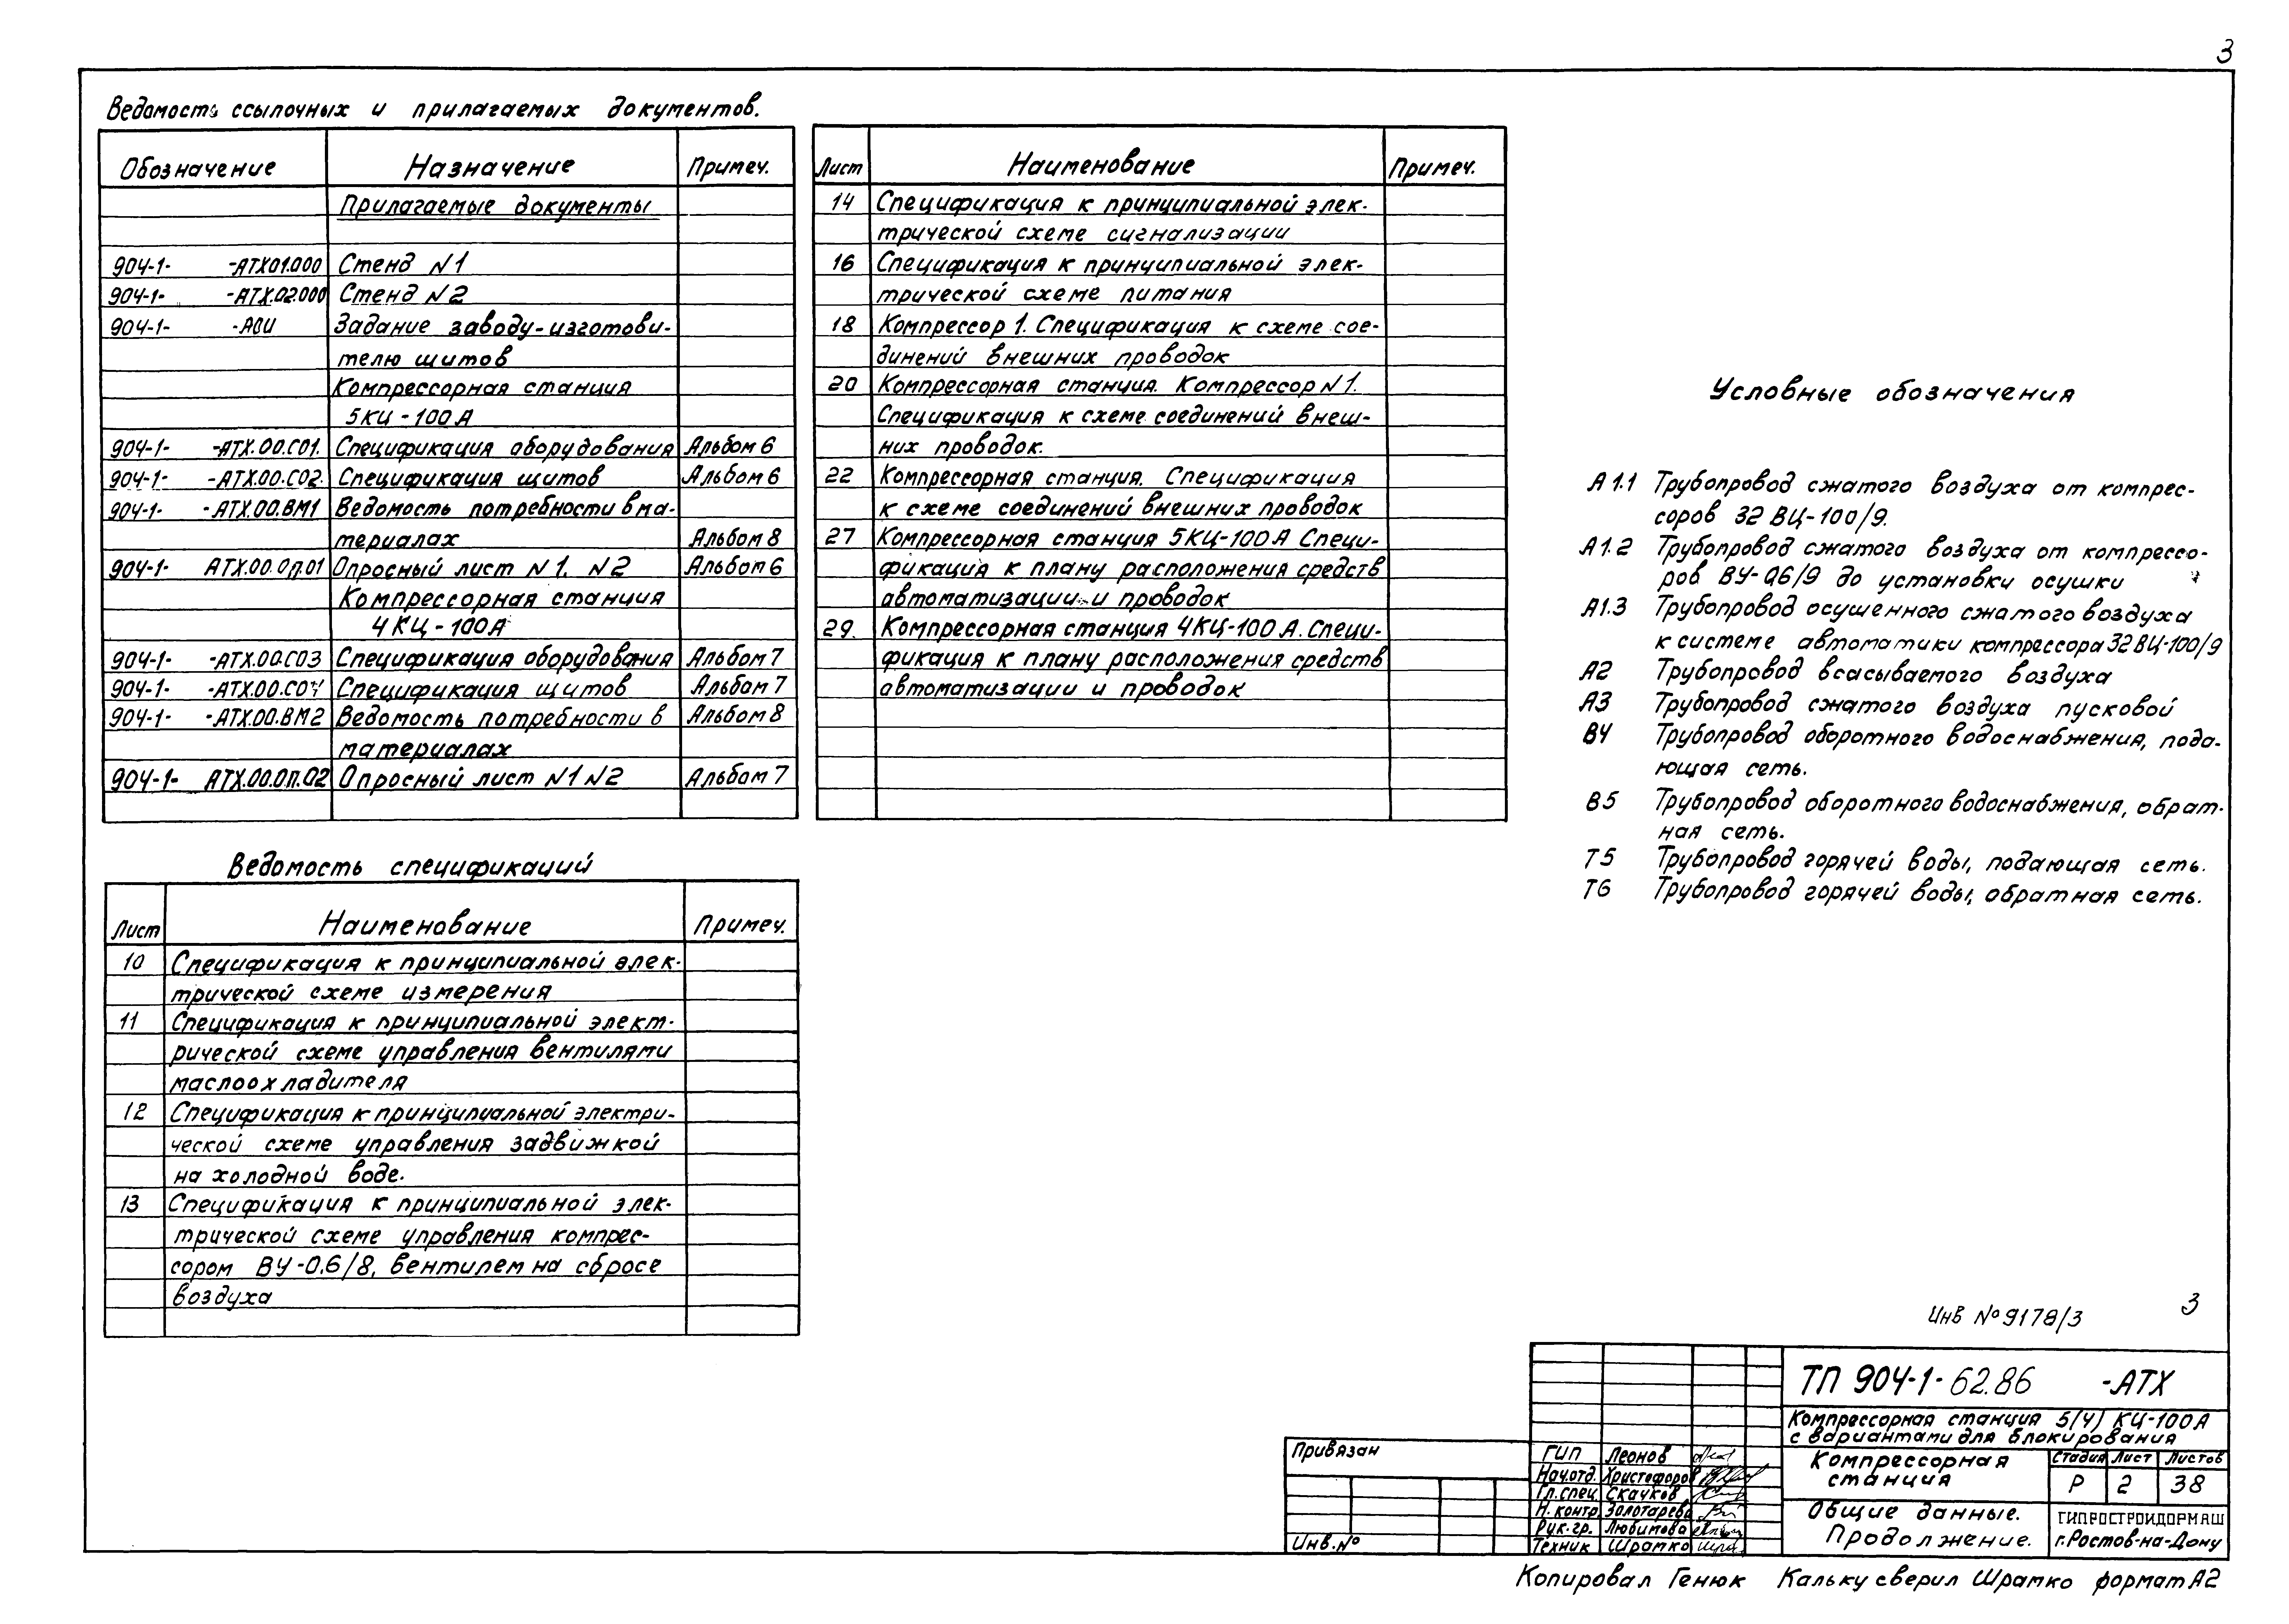 3
Ведомость ссылочных и прилагаемых документов.
Обозначение Назначение Примеч.
Прилагаемые документы
904-1- -АТХ01.000 Стенд N1
904-1- -АТХ.02.000 Стенд N2
904-1- Задание заводу-изготови-
телю щитов
Компрессорная станция
5КЦ-100А
904-1- -АТХ.00.С01. Спецификация оборудования Альбом 6
904-1- -АТХ.00.С02. Спецификация щитов Альбом 6
904-1- -АТХ.00.ВМ1 Ведомость потребности в ма-
териалах Альбом 8
904-1- АТХ.00.ОП.01 Опросный лист N1. N2 Альбом 6
Компрессорная станция
4КЦ-100А
904-1- -АТХ.00.С03 Спецификация оборудования Альбом 7
904-1- -АТХ.00.С04 Спецификация щитов Альбом 7
904-1- -АТХ.00.ВМ2 Ведомость потребности в Альбом 8
материалах
904-1- АТХ.00.ОП.02 Опросный лист N1 N2 Альбом 7
Ведомость спецификаций
Лист Наименование Примеч.
10 Спецификация к принципиальной элек-
трической схеме измерения
11 Спецификация к принципиальной элект-
рической схеме управления вентилями
маслоохладителя
12 Спецификация к принципиальной электри-
ческой схеме управления задвижкой
на холодной воде.
13 Спецификация к принципиальной элек-
трической схеме управления компрес-
сором ВУ-0.6/8, вентилем на сбросе
воздуха
Лист Наименование Примеч.
14 Спецификация к принципиальной элек-
трической схеме сигнализации
16 Спецификация к принципиальной элек-
трической схеме питания
18 Компрессор 1. Спецификация к схеме сое-
динений внешних проводок
20 Компрессорная станция. Компрессор N1.
Спецификация к схеме соединений внеш-
них проводок.
22 Компрессорная станция. Спецификация
к схеме соединений внешних проводок
27 Компрессорная станция 5КЦ-100А Специ-
фикация к плану расположения средств
автоматизации и проводок
29. Компрессорная станция 4КЦ-100А. Специ-
фикация к плану расположения средств
автоматизации и проводок
Условные обозначения
А1.1 Трубопровод сжатого воздуха от компрес-
соров 32 ВЦ-100/9.
А1.2 Трубопровод сжатого воздуха от компрессо-
ров ВУ-0,6/9 до установки осушки
А1.3 Трубопровод осушенного сжатого воздуха
к системе автоматики компрессора 32ВЦ-100/9
А2 Трубопровод всасываемого воздуха
А3 Трубопровод сжатого воздуха пусковой
В4 Трубопровод оборотного водоснабжения, пода-
ющая сеть.
В5 Трубопровод оборотного водоснабжения, обрат-
ная сеть.
Т5 Трубопровод горячей воды, подающая сеть.
Т6 Трубопровод горячей воды, обратная сеть.
Инв №9178/3 3
ТП 904-1-62.86 -АТХ
Компрессорная станция 5(4) КЦ-100А
с вариантами для блокирования
Привязан
Инв.№
ГИП Леонов
Нач.отд. Христофоров
Гл.спец. Скачков
Н.контр. Золотарева
Рук.гр. Любимова
Техник Шрамко
Компрессорная
станция
Стадия Лист Листов
Р 2 38
Общие данные.
Продолжение.
ГИПРОСТРОЙДОРМАШ
г.Ростов-на-Дону
Копировал Генюк Кальку сверил Шрамко формат А2